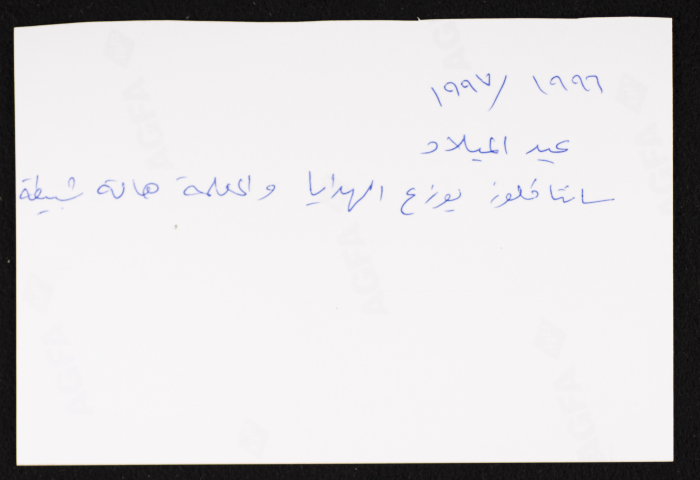 ١٩٩٦ /١٩٩٧
عيد الميلاد
سانتا كلوز يوزع الهدايا والمعلمة هالة شبيطة
AGFA
AGFA
AGFA
AGFA
AGFA
AGFA